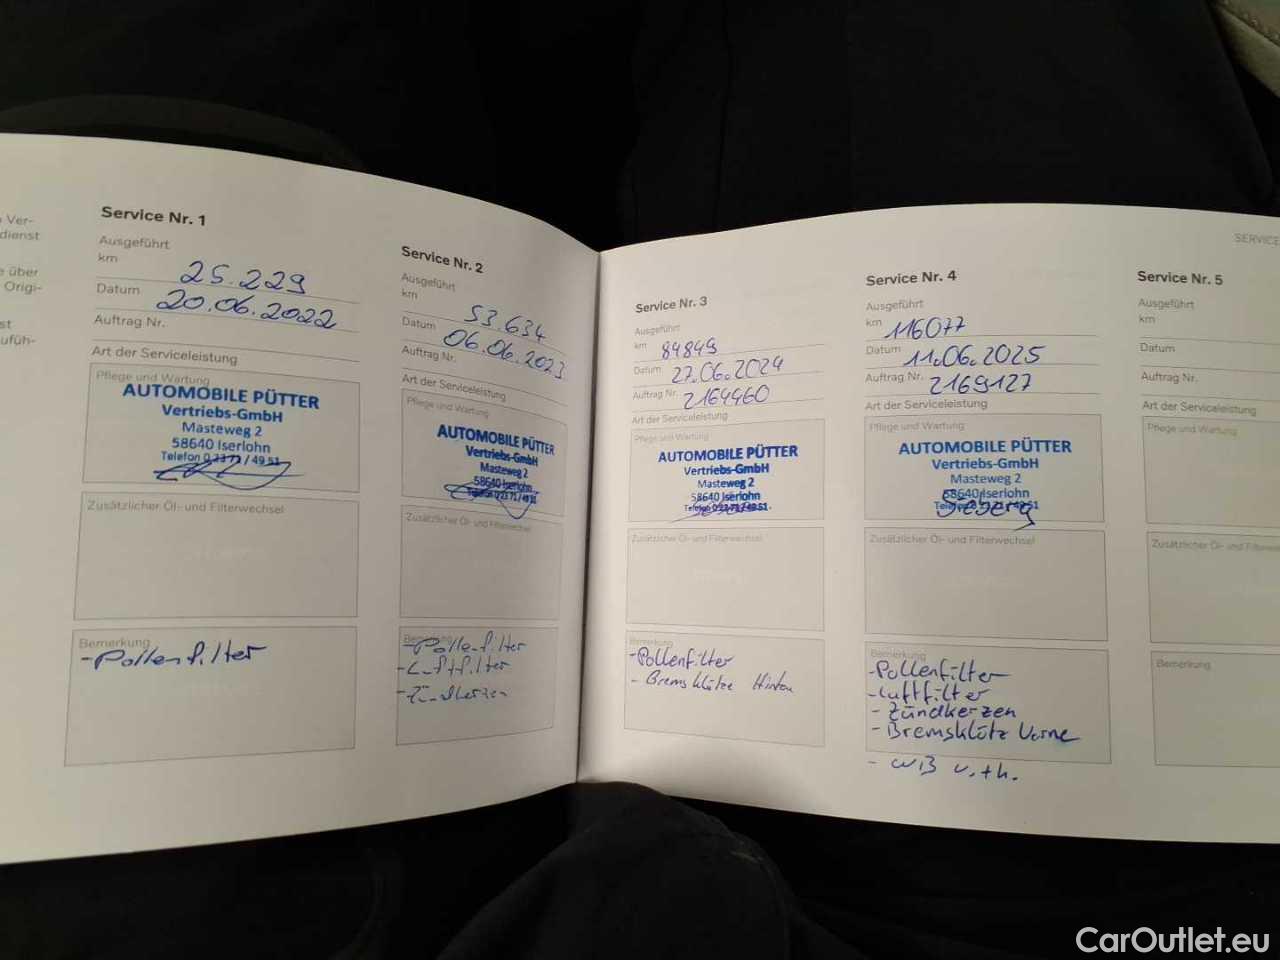 Ver-
dienst
e über
Origi-
st
ufüh-
Service Nr. 1
Ausgeführt
km 25.229
Datum 20.06.2022
Auftrag Nr.
Art der Serviceleistung
Pflege und Wartung
AUTOMOBILE PÜTTER
Vertriebs-GmbH
Masteweg 2
58640 Iserlohn
Telefon 0 23 71 / 49 51
Zusätzlicher Öl- und Filterwechsel
Bemerkung
-Pollenfilter
Service Nr. 2
Ausgeführt
km 53.634
Datum 06.06.2023
Auftrag Nr.
Art der Serviceleistung
Pflege und Wartung
AUTOMOBILE PÜTTER
Vertriebs-GmbH
Masteweg 2
58640 Iserlohn
Telefon 0 23 71 / 49 51
Zusätzlicher Öl- und Filterwechsel
Bemerkung
-Pollenfilter
-Luftfilter
-Zündkerzen
Service Nr. 3
Ausgeführt
km 84849
Datum 27.06.2024
Auftrag Nr. 2164460
Art der Serviceleistung
Pflege und Wartung
AUTOMOBILE PÜTTER
Vertriebs-GmbH
Masteweg 2
58640 Iserlohn
Telefon 0 23 71 / 49 51
Zusätzlicher Öl- und Filterwechsel
Bemerkung
-Pollenfilter
- Bremsklötze Hinten
Service Nr. 4
Ausgeführt
km 116077
Datum 11.06.2025
Auftrag Nr. 2169127
Art der Serviceleistung
Pflege und Wartung
AUTOMOBILE PÜTTER
Vertriebs-GmbH
Masteweg 2
58640 Iserlohn
Telefon 0 23 71 / 49 51
Zusätzlicher Öl- und Filterwechsel
Bemerkung
-Pollenfilter
-Luftfilter
- Zündkerzen
- Bremsklötze Vorne
- WiB v.+h.
SERVICE
Service Nr. 5
Ausgeführt
km
Datum
Auftrag Nr.
Art der Serviceleistung
Pflege und Wartung
Zusätzlicher Öl- und Filterwechs
Bemerkung
CarOutlet.eu